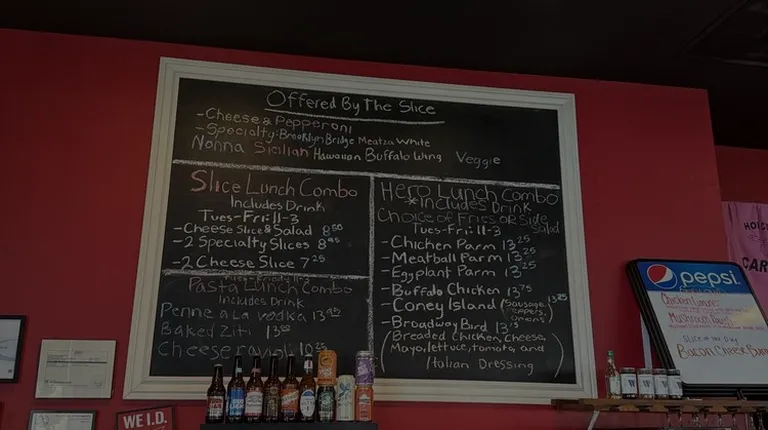 Offered By The Slice
-Cheese & Pepperoni
-Specialty: Brooklyn Bridge Meatza White
Nonna Sicilian Hawaiian Buffalo Wing Veggie
Slice Lunch Combo
Includes Drink
Tues-Fri: 11-3
-Cheese Slice & Salad 8
-2 Specialty Slices 8
-2 Cheese Slice 7.25
Pasta Lunch Combo
Includes Drink
Penne a la vodka 13
Baked Ziti 13
Cheese ravioli
Hero Lunch Combo
*Includes Drink
Choice of Fries or Side
Salad
Tues-Fri: 11-3
-Chicken Parm 13.25
-Meatball Parm 13.25
-Eggplant Parm 13.25
-Buffalo Chicken 13.75
-Coney Island (Sausage, Peppers, Onions)
-Broadway Bird 13
(Breaded Chicken, Cheese,
Mayo, lettuce, tomato, and
Italian Dressing)
pepsi
Slice of the Day
Bacon Cheese
WE I.D.
W W W